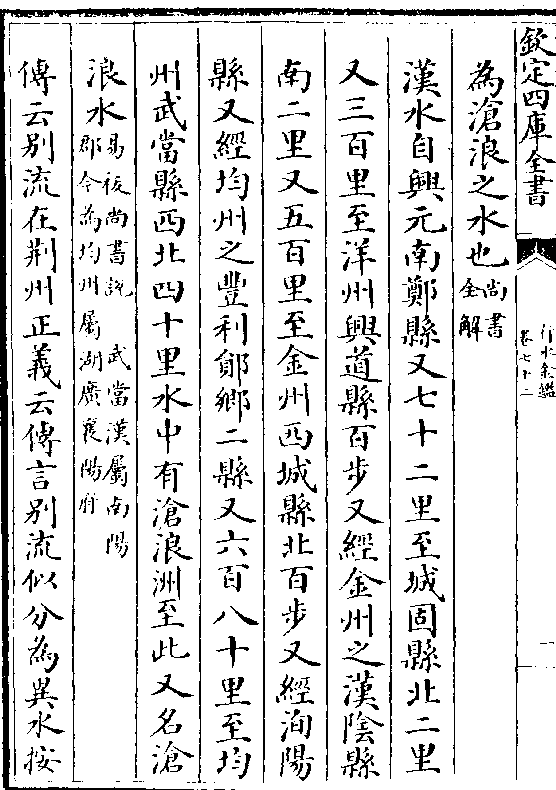 欽定四庫全書
行水金鑑
卷七十二
為滄浪之水也尚書
全解
漢水自興元南鄭縣又七十二里至城固縣北二里
又三百里至洋州興道縣百步又經金州之漢陰縣
南二里又五百里至金州西城縣北百步又經洵陽
縣又經均州之豐利鄖鄉二縣又六百八十里至均
州武當縣西北四十里水中有滄浪洲至此又名滄
浪水易祓尚書說 武當漢屬南陽
郡今為均州屬湖廣襄陽府
傳云別流在荆州正義云傳言別流似分為異水按